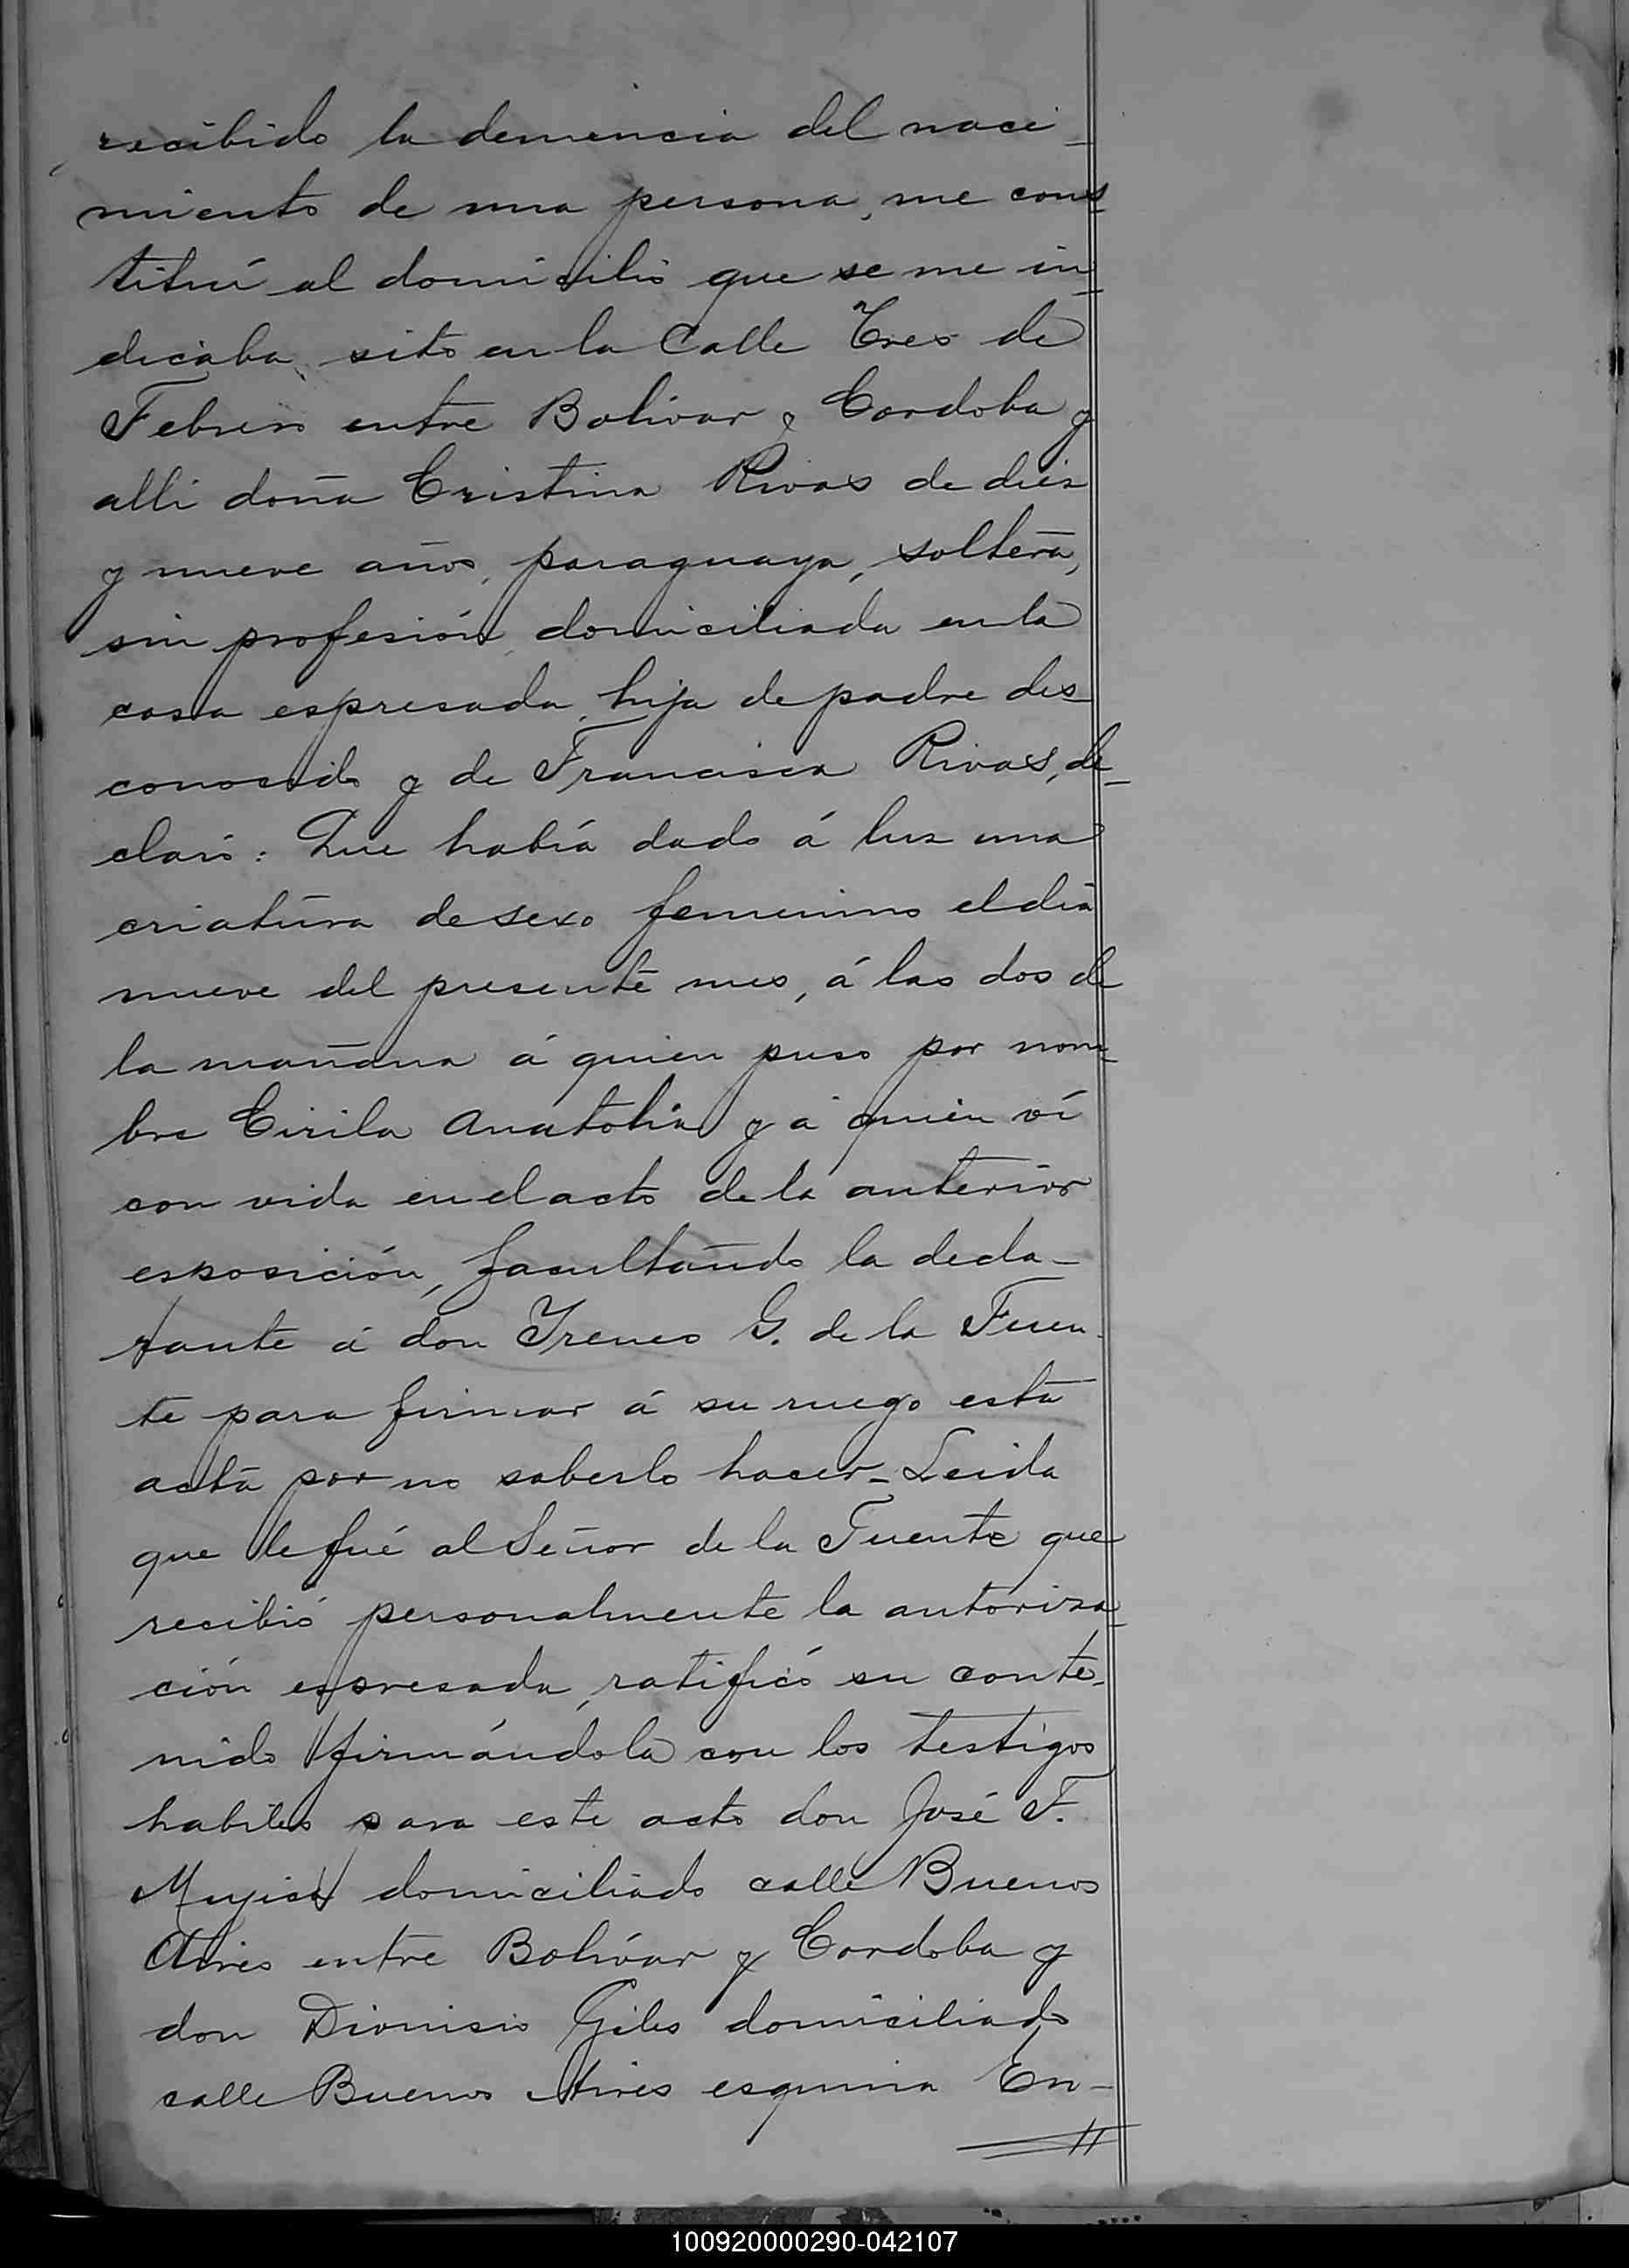 recibido la denuncia del naci_
miento de una persona, me cons_
tituí al domicilio que se me in_
dicaba, sito en la Calle Tres de
Febrero entre Bolívar y Cordoba y
alli doña Cristina Rivas de diez
y nueve años, paraguaya, soltera,
sin profesión, domiciliada en la
casa espresada, hija de padre des_
conocido y de Francisca Rivas, de_
claró: Que había dado á luz una
criatura de sexo femenino el dia
nueve del presente mes, á las dos de
la mañana á quien puso por nom_
bre Cirila Anatolia y á quien ví
con vida en el acto de la anterior
esposición, facultando la decla_
rante á don Yreneo G. de la Fuen_
te para firmar á su ruego esta
acta por no saberlo hacer_ Leida
que le fué al Señor de la Fuente que
recibió personalmente la autoriza_
ción espresada, ratificó su conte_
nido firmándola con los testigos
habiles para este acto don José F.
Mujica domiciliado calle Buenos
Aires entre Bolívar y Cordoba y
don Dionisio Giles domiciliado
calle Buenos Aires esquina En_
100920000290-042107